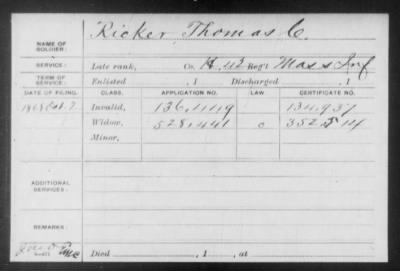 Ricker Thomas C.
NAME OF SOLDIER:
SERVICE: Late rank, Co. K, 42 Reg't Mass Inf
TERM OF SERVICE: Enlisted , 1 Discharged , 1
DATE OF FILING. CLASS. APPLICATION NO. LAW. CERTIFICATE NO.
1868 Oct. 7 Invalid, 136,449 134,937
Widow, 528,441 c 352514
Minor,
ADDITIONAL SERVICES:
REMARKS:
Died , 1 , at